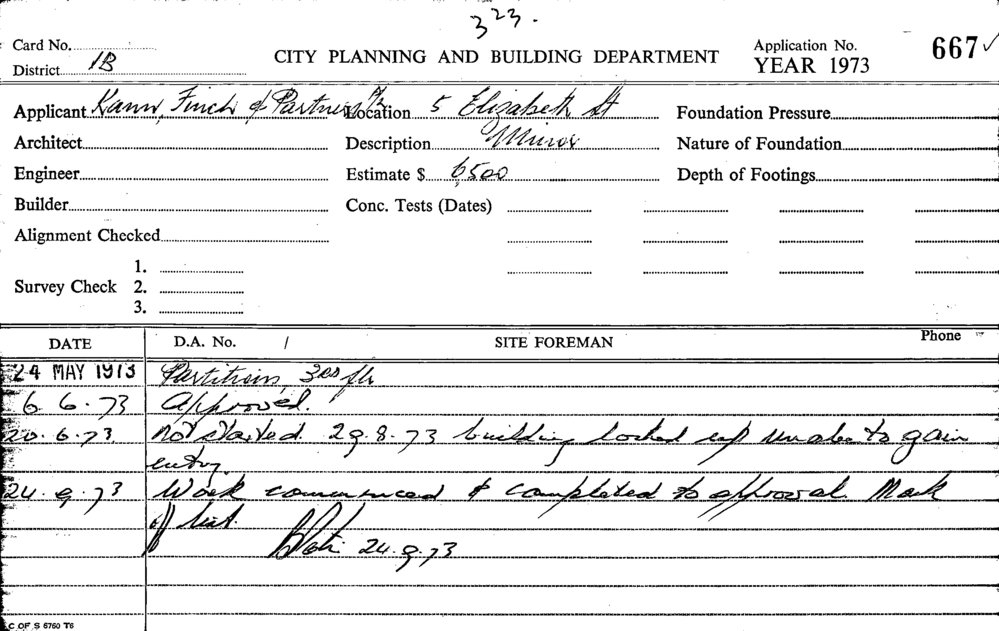 323.
Card No.
CITY PLANNING AND BUILDING DEPARTMENT
Application No. 667✓
District 1B
YEAR 1973
Applicant Kann, Finch & Partners Location 5 Elizabeth St Foundation Pressure
Architect Description Minor Nature of Foundation
Engineer Estimate $ 6,500 Depth of Footings
Builder Conc. Tests (Dates)
Alignment Checked
1.
Survey Check 2.
3.
DATE D.A. No. / SITE FOREMAN Phone
24 MAY 1973 Partitions, 3rd flr
6.6.73 Approved.
20.6.73 Not started. 29.8.73 building locked up unable to gain
entry.
24.9.73 Work commenced & completed to approval. Mark
off list.
24.9.73
C OF S 6760 T6